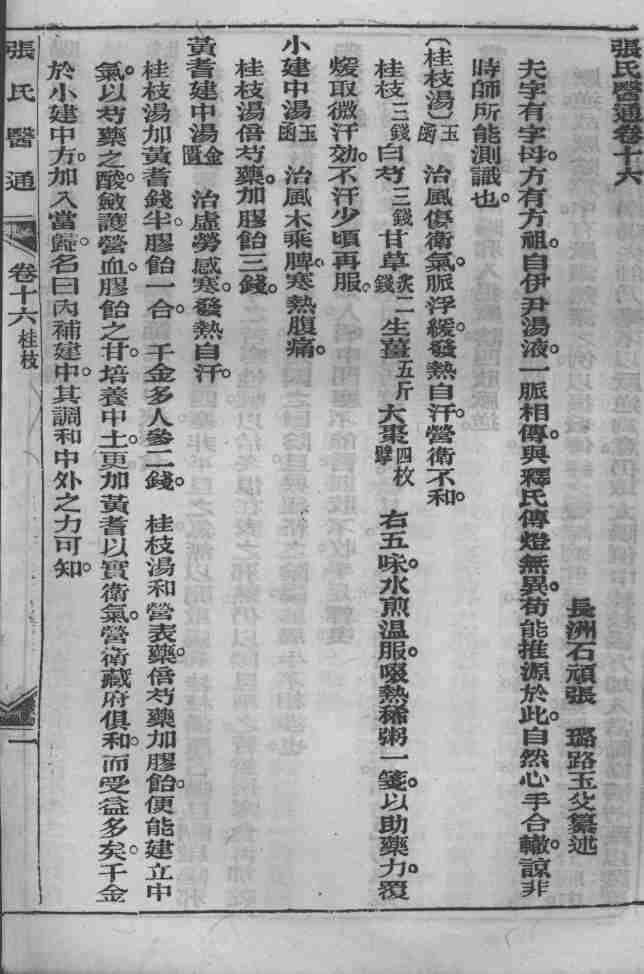 張氏醫通卷十六
長洲石頑張 璐路玉父纂述
夫字有字母。方有方祖。自伊尹湯液。一脈相傳。與釋氏傳燈無異。苟能推源於此。自然心手合轍。諒非
時師所能測識也。
(桂枝湯)玉函 治風傷衛氣。脈浮緩。發熱自汗。營衛不和。
桂枝三錢白芍三錢甘草炙二錢生薑五斤大棗四枚擘 右五味。水煎溫服。啜熱稀粥一箋。以助藥力。覆
煖取微汗效。不汗少頃再服。
小建中湯玉函 治風木乘脾。寒熱腹痛。
桂枝湯倍芍藥。加膠飴三錢。
黃耆建中湯金匱 治虛勞感寒。發熱自汗。
桂枝湯加黃耆錢半。膠飴一合。 千金多人參二錢。 桂枝湯和營表藥。倍芍藥加膠飴。便能建立中
氣。以芍藥之酸。斂護營血。膠飴之甘。培養中土。更加黃耆以實衛氣。營衛藏府俱和。而受益多矣。千金
於小建中方。加入當歸。名曰內補建中。其調和中外之力可知。
張氏醫通
卷十六 桂枝
一